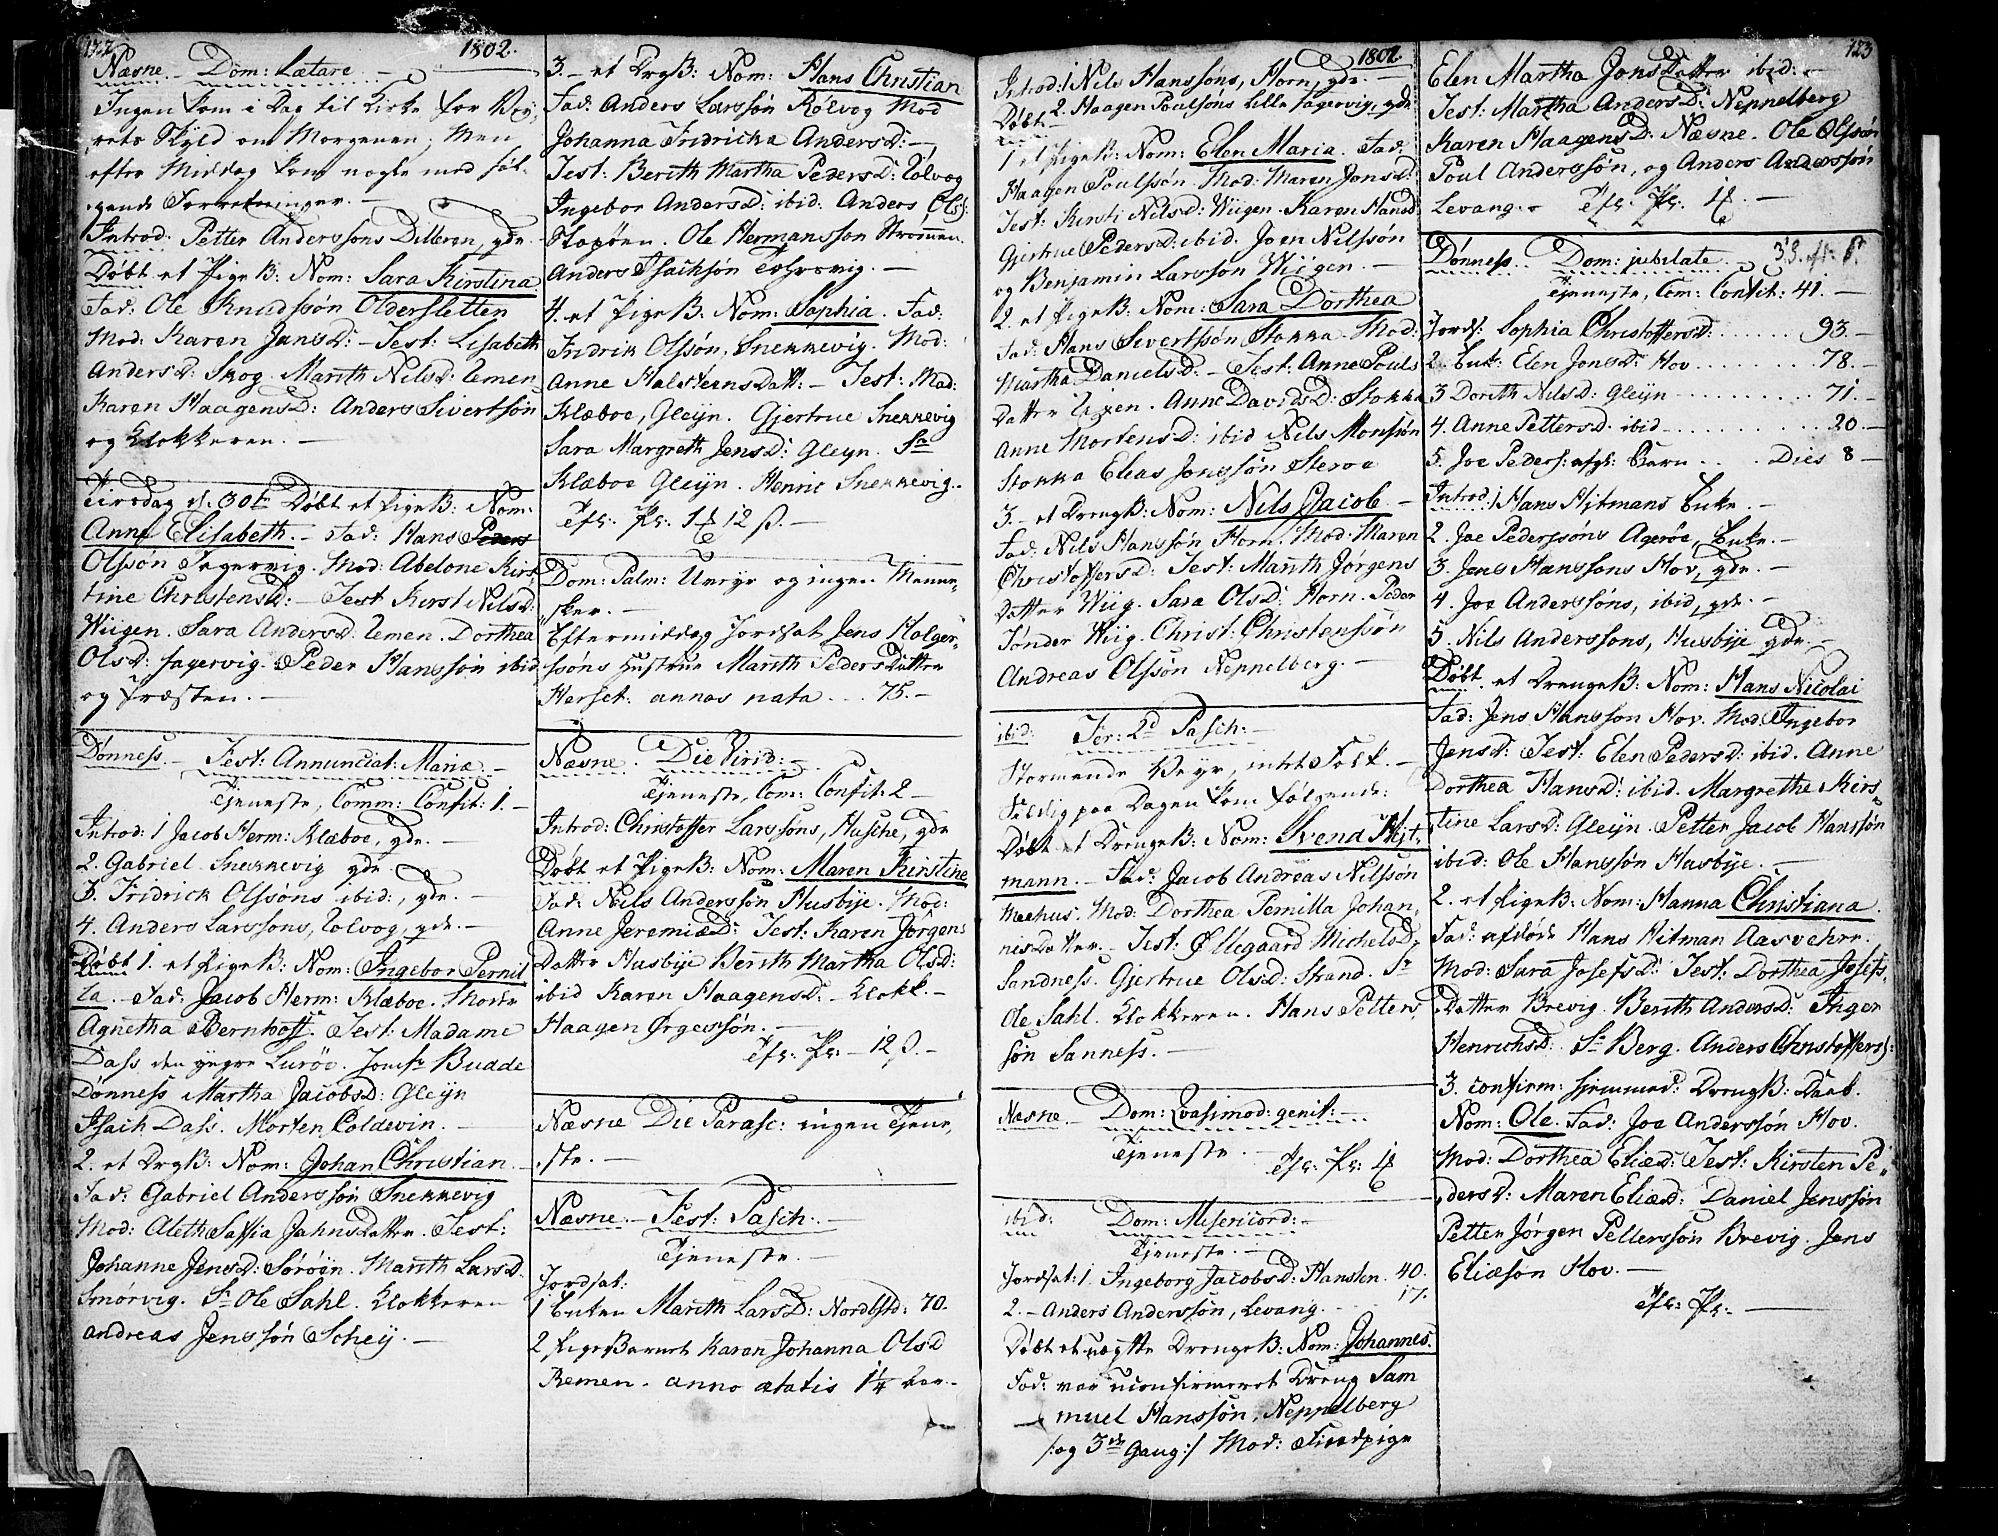 122.
1802.
Næsne Dom: Lætare
Ingen kom i Dag til Kirke for Vey,
rets Skyld om Morgenen, Men
efter Middag kom nogle med føl-
gende Forretninger.
Introd: Petter Anderssons Dilleren, gde.
Døbt et PigeB: Nom: Sara Kirstina.
Fad: Ole Knudssøn Oldersletten
Mod: Karen JansD: Test: Lisabeth
AndersD: Skog. Marith NilsD: Zemen
Karen HaagensD: Anders Sivertsøn
og Klokkeren.
Tirsdag d. 30te Døbt et PigeB: Nom:
Anne Elisabeth. Fad: Hans Peders
Olssøn Fagervig. Mod: Abelone Kirs
tine ChristensD: Test Kirst NilsD:
Wiigen. Sara AndersD: Zemen. Dorthea
OlsD: Fagervig. Peder Hanssøn ibid
og Præsten.
Dønness Fest: Annunciat: Mariæ.
Tjeneste, Comm: Confit: 1.
Introd: 1 Jacob Herm: Klæboe, gde.
2. Gabriel Snekkevig gde.
3. Fridrick Olssøns ibid:, gde.
4. Anders Larssøns, Tolvog, gde.
Døbt 1. et PigeB: Nom: Ingebor Pernil
la. Fad: Jacob Herm: Klæboe. Mod
Agnetha Bernhoft. Test: Madame
Dass den yngre Lurøe. Jomfr Budde
Dønness Martha JacobsD: Gleijn
Isach Dass. Morten Coldevin.
2. et DrgB: Nom: Johan Christian.
Fad: Gabriel Anderssøn Snekkevig
Mod: Aleth Saffia JahnsDatter. Test:
Johanne JensD: Sørøen. Marith LarsD.
Smørvig. Sr Ole Dahl. Klokkeren
andreas Jenssøn Schey.
3. et DrgB: Nom: Hans Christian
Fad: Anders Larssøn Kolvog Mod
Johanna Fridricka AndersD:
Test: Berith Martha PedersD: Tolvog
Ingebor AndersD: ibid: Anders Ols:
Skopøen. Ole Hermansson Strømmen.
Anders Isachsøn
4. et PigeB: Nom: Sophia. Fad:
Fridrik Olssøn, Snekkevig. Mod:
Anne HalsteensDatt: Test: Mad:
Klæboe, Gleijn. Gjertrue Snekkevig
Sara Margreth JensD: Gleijn. Sr
Klæboe Gleijn. Henric Snekkevig.
Efs: Ps: 1 12 ß.
Dom: Palm: Uveyr og ingen Menne,
sker.
Eftermiddag Jordsat Jens Holger,
ssøns Hustrue Marith PedersDatter
Herset. annos nata 75.
Næsne. Die Virid:
Tjeneste, Com: Confit: 2
Introd: Christoffer Larssøns, Husbye, gde
Døbt et PigeB: Nom: Maren Kirstine
Fad: Nils Anderssøn Husbije. Mod:
Anne JeremiæD: Test: Karen Jørgens
Datter Husbije Berith Martha OlsD:
ibid Karen HaagensD. Klokk.
Haagen Ørgessøn.
Efs: Ps: 12 ß.
Næsne Die Parasc: ingen Tjene,
ste.
Næsne. Fest: Pasch:
Tjeneste
Jordsat:
1 Enken Marith LarsD: Nordlstd: 70.
2 PigeBarnet Karen Johanna OlsD
Remen. anno ætatis 1¼ Aar.
1802
123
Introd: 1 Nils Hanssøns, Horn, gde.
2. Haagen Poulsøns Lille Fagervig, gde
Døbt
1 et PigeB: Nom: Elen Maria. Fad:
Haagen Poulssøn. Mod: Maren JonsD:
Test: Kirsti NilsD: Wiigen. Karen HansD
Gjertrue PedersD: ibid. Joen Nilssøn
og Benjamin Larssøn Wiigen.
2. et PigeB: Nom: Sara Dorthea
Fad: Hans Sivertssøn Stokka Mod:
Martha DanielsD. Test: Anne Pouls
Datter. Anne DavidsD: Stokka
Anne MortensD: ibid Nils Monssøn
Stokka Elias Jonssøn Steroe
3. et DrengB: Nom: Nils Jacob.
Fad: Nils Hanssøn Horn. Mod: Maren
ChristoffersD: Test: Marith Jørgens
Datter Wiig. Sara OlsD: Horn. Peder
Tønder Wiig. Christ: Christenssøn
Andreas Olssøn Neppelberg.
ibid: Fer: 2d Pasch:
Stormende Veyr, intet Folk.
Sildig paa Dagen kom følgende:
Døbt et DrengeB: Nom: Svend Hiit-
mann. Fad: Jacob Andreas Nilssøn
Meehus. Mod: Dorthea Pernilla Johan,
nesDatter. Test: Øllegaard MichelsD.
Sandness. Gjertrue OlsD: Strand. Sr
Ole Dahl. Klokkeren. Hans Petters,
søn Sanness.
Næsne Dom: Qvasimod: genit:
Tjeneste.
Efs: Ps:
ibid: Dom: Misericord:
Tjeneste.
Jordsat: 1. Ingeborg JacobsD: Hansten. 40.
2. Anders Anderssøn, Levang. 17.
Døbt et uægte DrengeB: Nom: Johannes.
Fad: var uconfirmeret Dreng Sam
muel Hanssøn, Neppelberg
/:og 3de Gang:/ Mod: Findpige
Elen Martha JonsDatter ibid:
Test: Martha AndersD: Neppelberg
Karen HaagensD: Næsne. Ole Olssøn
Poul Anderssøn, og Anders Anderssøn
Levang. Efs: Ps:
Dønness. Dom: jubilate
Tjeneste, Com: Confit: 41.
Jords: Sophia ChristoffersD: 93.
2. Enk: Elen JonsD: Hov 78.
3 Dorith NilsD: Gleijn 71.
4. Anne PettersD: ibid 20
5. Joe Peders: afgl: Barn Dies 8
Introd: 1 Hans Hitmans Enke.
2. Joe Pederssøns Agerøe, Enke.
3. Jens Hanssøns Hov, gde.
4. Joe Anderssøns, ibid, gde.
5. Nils Anderssøns, Husbije gde.
Døbt. et DrengeB: Nom: Hans Nicolai
Fad: Jens Hansson Hov. Mod: Ingebor
JensD: Test: Elen PedersD: ibid. Anne
Dorthea HansD: ibid. Margrethe Kirs,
tine LarsD: Gleijn. Petter Jacob Hanssøn
ibid: Ole Hanssøn Husbije.
2. et PigeB: Nom: Hanna Christiana.
Fad: afdøde Hans Hitman Aasvehre.
Mod: Sara JosefsD: Test: Dorthea Josefs,
Datter Brevig. Berith AndersD: Inger
HenrichsD. Sr Berg. Anders Christoffers:
3. confirm: hjemmed: DrengB: Daab.
Nom: Ole. Fad: Joe Anderssøn Hov.
Mod: Dorthea EliæD: Test: Kirsten Pe,
dersD: Maren EliæD: Daniel Jenssøn
Petter Jørgen Pettersson Brevig. Jens
Eliæsøn Hov.
Efs: Ps: